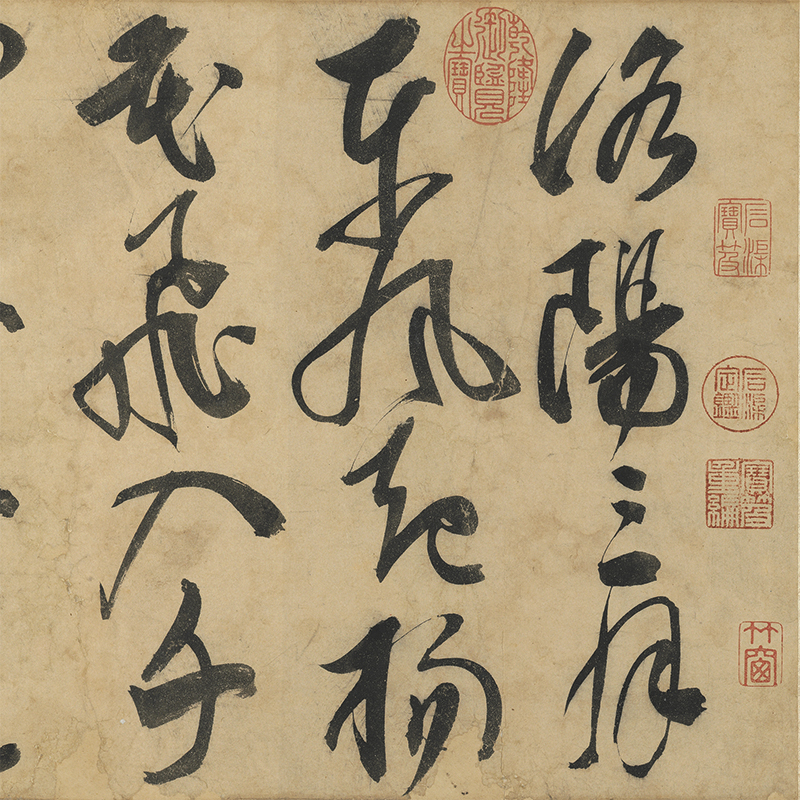 乾隆御覽之寶
洛陽三月
東風起楊
花飛入千
石渠寶笈
石渠定鑑
寶笈重編
竹窗